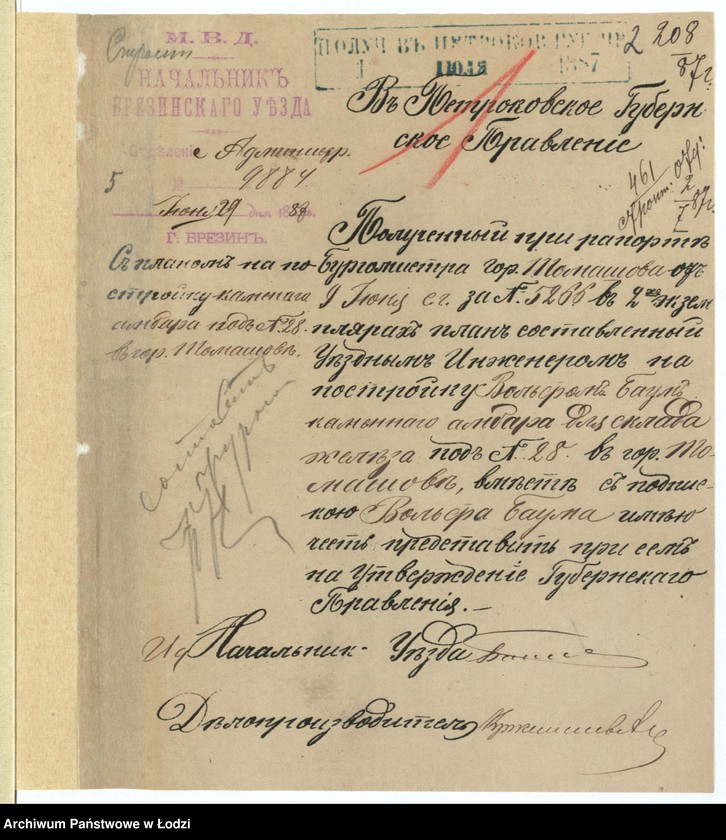 М. В. Д.
НАЧАЛЬНИКЪ
БРЕЗИНСКАГО УѢЗДА
Отдѣленіе Администр.
№ 9884
5
Іюня 29 дня 1887
Г. БРЕЗИНЪ.
Съ планомъ на по
стройку каменнаго
амбара подъ № 28
въ гор. Томашовѣ.
ПОЛУЧ ВЪ ПЕТРОКОВ ГУБ. ПР
1 ІЮЛЯ 1887
2 208
87 г.
Въ Петроковское Губерн-
ское Правленіе
461
2
87 г.
Полученный при рапортѣ
Бургомистра гор. Томашова отъ
9 Іюня с. г. за № 5266 въ 2хъ экзем
плярахъ планъ составленный
Уѣзднымъ Инженеромъ на
постройку Вольфомъ Баумъ
каменнаго амбара для склада
желѣза подъ № 28. въ гор. То-
машовѣ, вмѣстѣ съ подпис-
кою Вольфа Баума имѣю
честь представить при семъ
на утвержденіе Губернскаго
Правленія. –
Начальникъ Уѣзда
Дѣлопроизводитель
Archiwum Państwowe w Łodzi